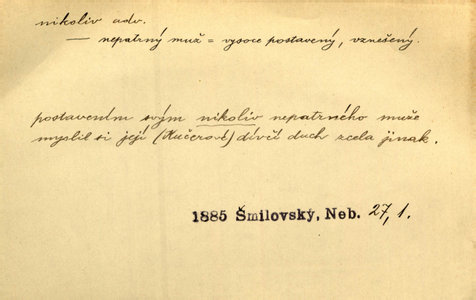 nikoliv adv.
— nepatrný muž = vysoce postavený, vznešený.
postavením svým nikoliv nepatrného muže
myslil si její (Kučerové) dívčí duch zcela jinak.
1885 Šmilovský, Neb. 27, 1.